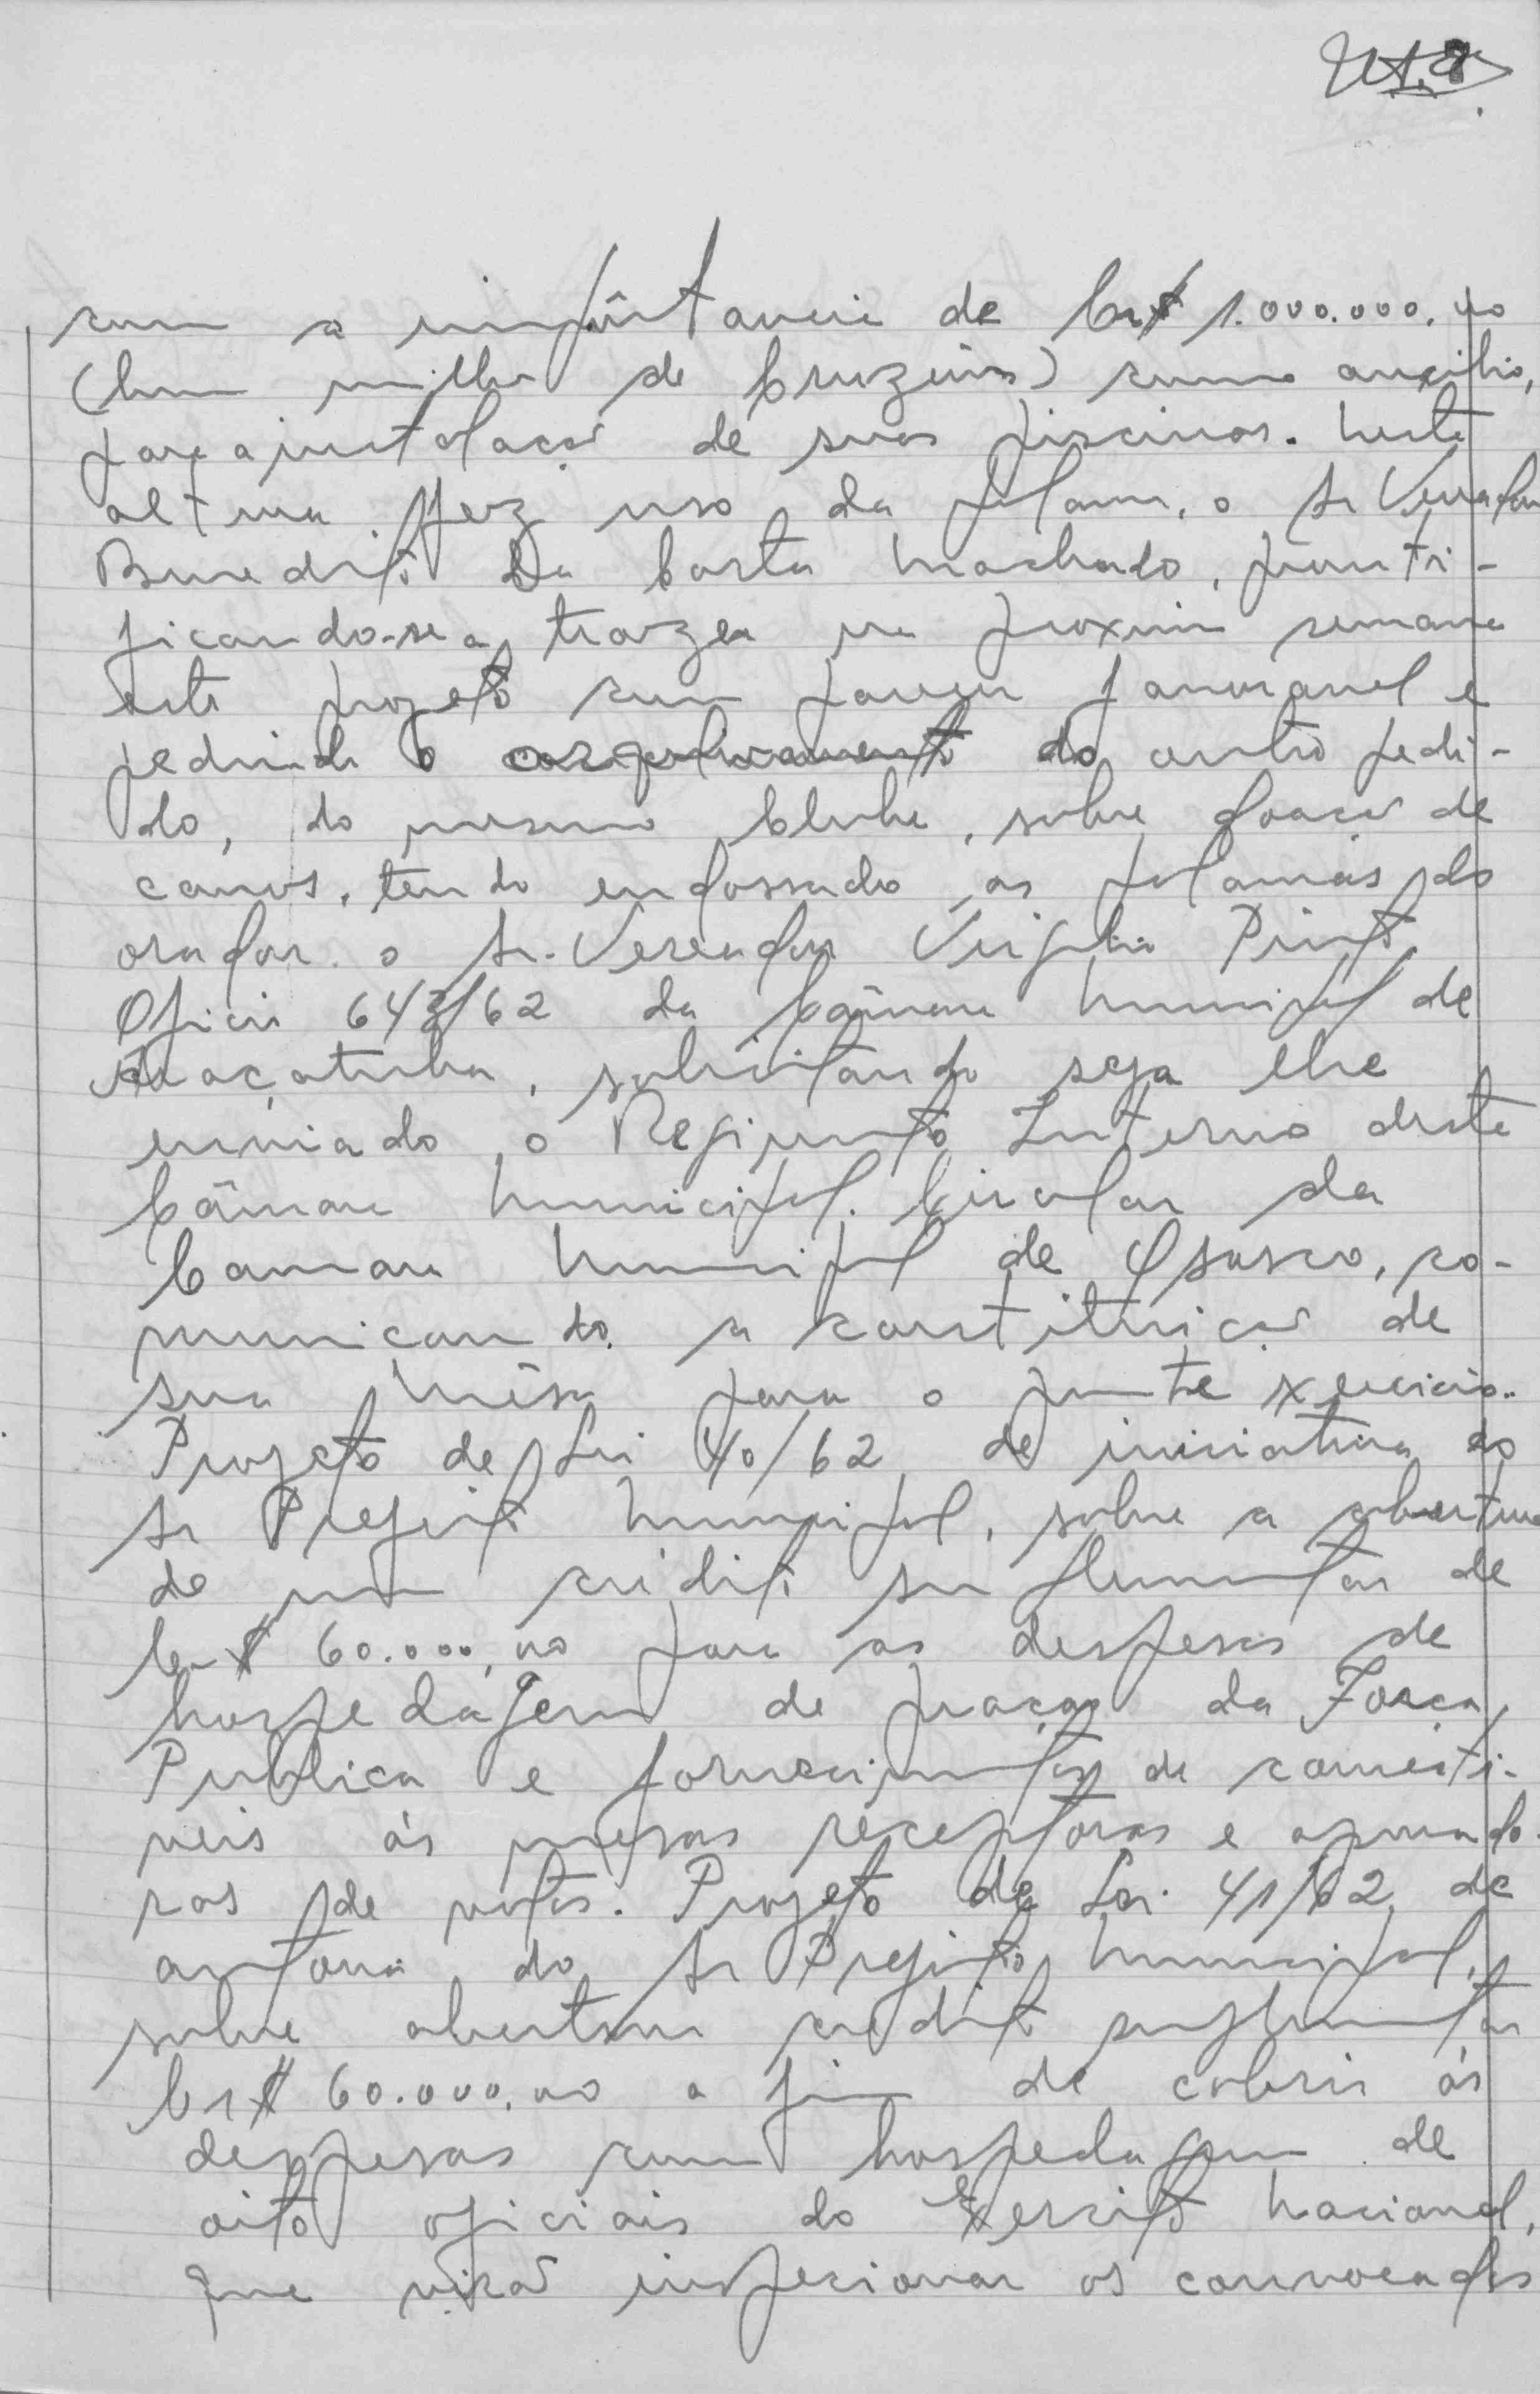 com a importância de Cr$ 1.000.000,00
(hum milhão de Cruzeiros) como auxilio,
para a instalação de suas piscinas. Nesta
altura fez uso da palavra, o Sr Vereador
Benedito Da Costa Machado, pronti-
ficando-se a trazer na proxima semana
este projeto com parecer favoravel e
pedindo o do outro pedi-
do, do mesmo Clube, sobre doação de
canos, tendo endossado as palavras do
orador o Sr. Vereador Virgilio Pinto.
Oficio 643/62 da Câmara Municipal de
Araçatuba, solicitando seja lhe
enviado o Regimento Interno desta
Câmara Municipal. Circular da
Camara Municipal de Osasco, co-
municando a constituição de
sua Mêsa para o presente exercicio.
Projeto de Lei 40/62 de iniciativa do
Sr Prefeito Municipal, sobre a abertura
de um crédito suplementar de
Cr$ 60.000,00 para as despesas de
hospedagem de praças da Força
Publica e fornecimentos de comesti-
veis ás mesas receptoras e apurado-
ras de votos. Projeto de Lei 41/62 de
autoria do Sr Prefeito Municipal,
sobre abertura credito suplementar
Cr$ 60.000,00 a fim de cobrir ás
despesas com hospedagem de
oito oficiais do Exercito Nacional,
que virão inspecionar os convocados